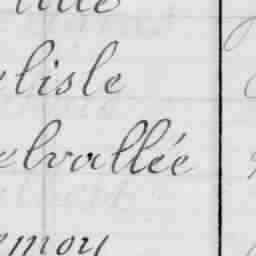 lisle
elvallée
emoy